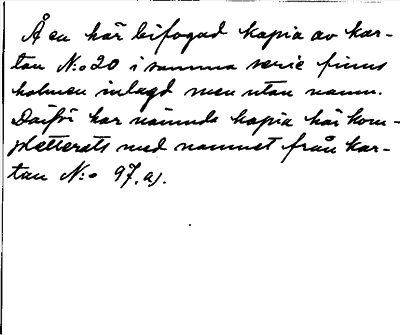 Å en här bifogad kopia av kar-
tan N:o 20 i samma serie finns
holmen inlagd men utan namn.
Därför har nämnda kopia här kom-
pletterats med namnet från kar-
tan N:o 97.a).